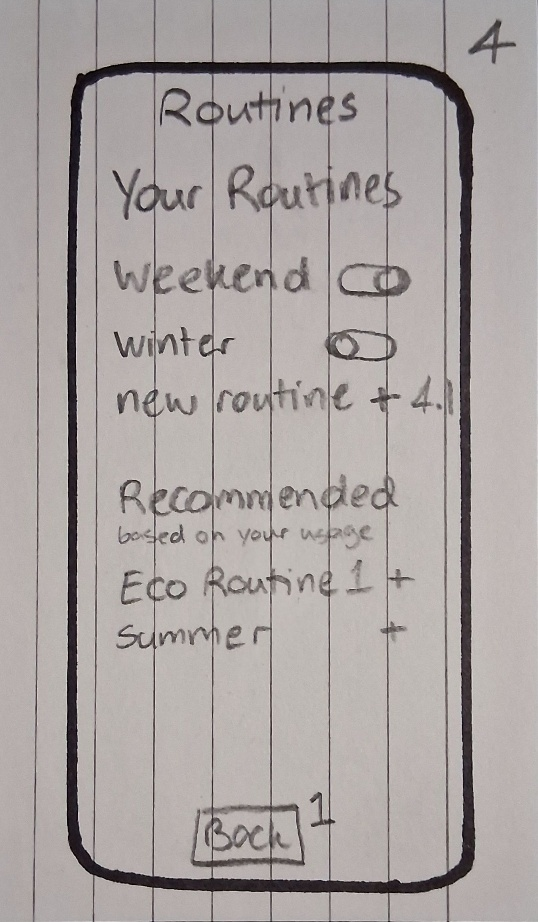 4
Routines
Your Routines
Weekend
winter
new routine + 4.1
Recommended
based on your usage
Eco Routine 1 +
summer +
Back 1